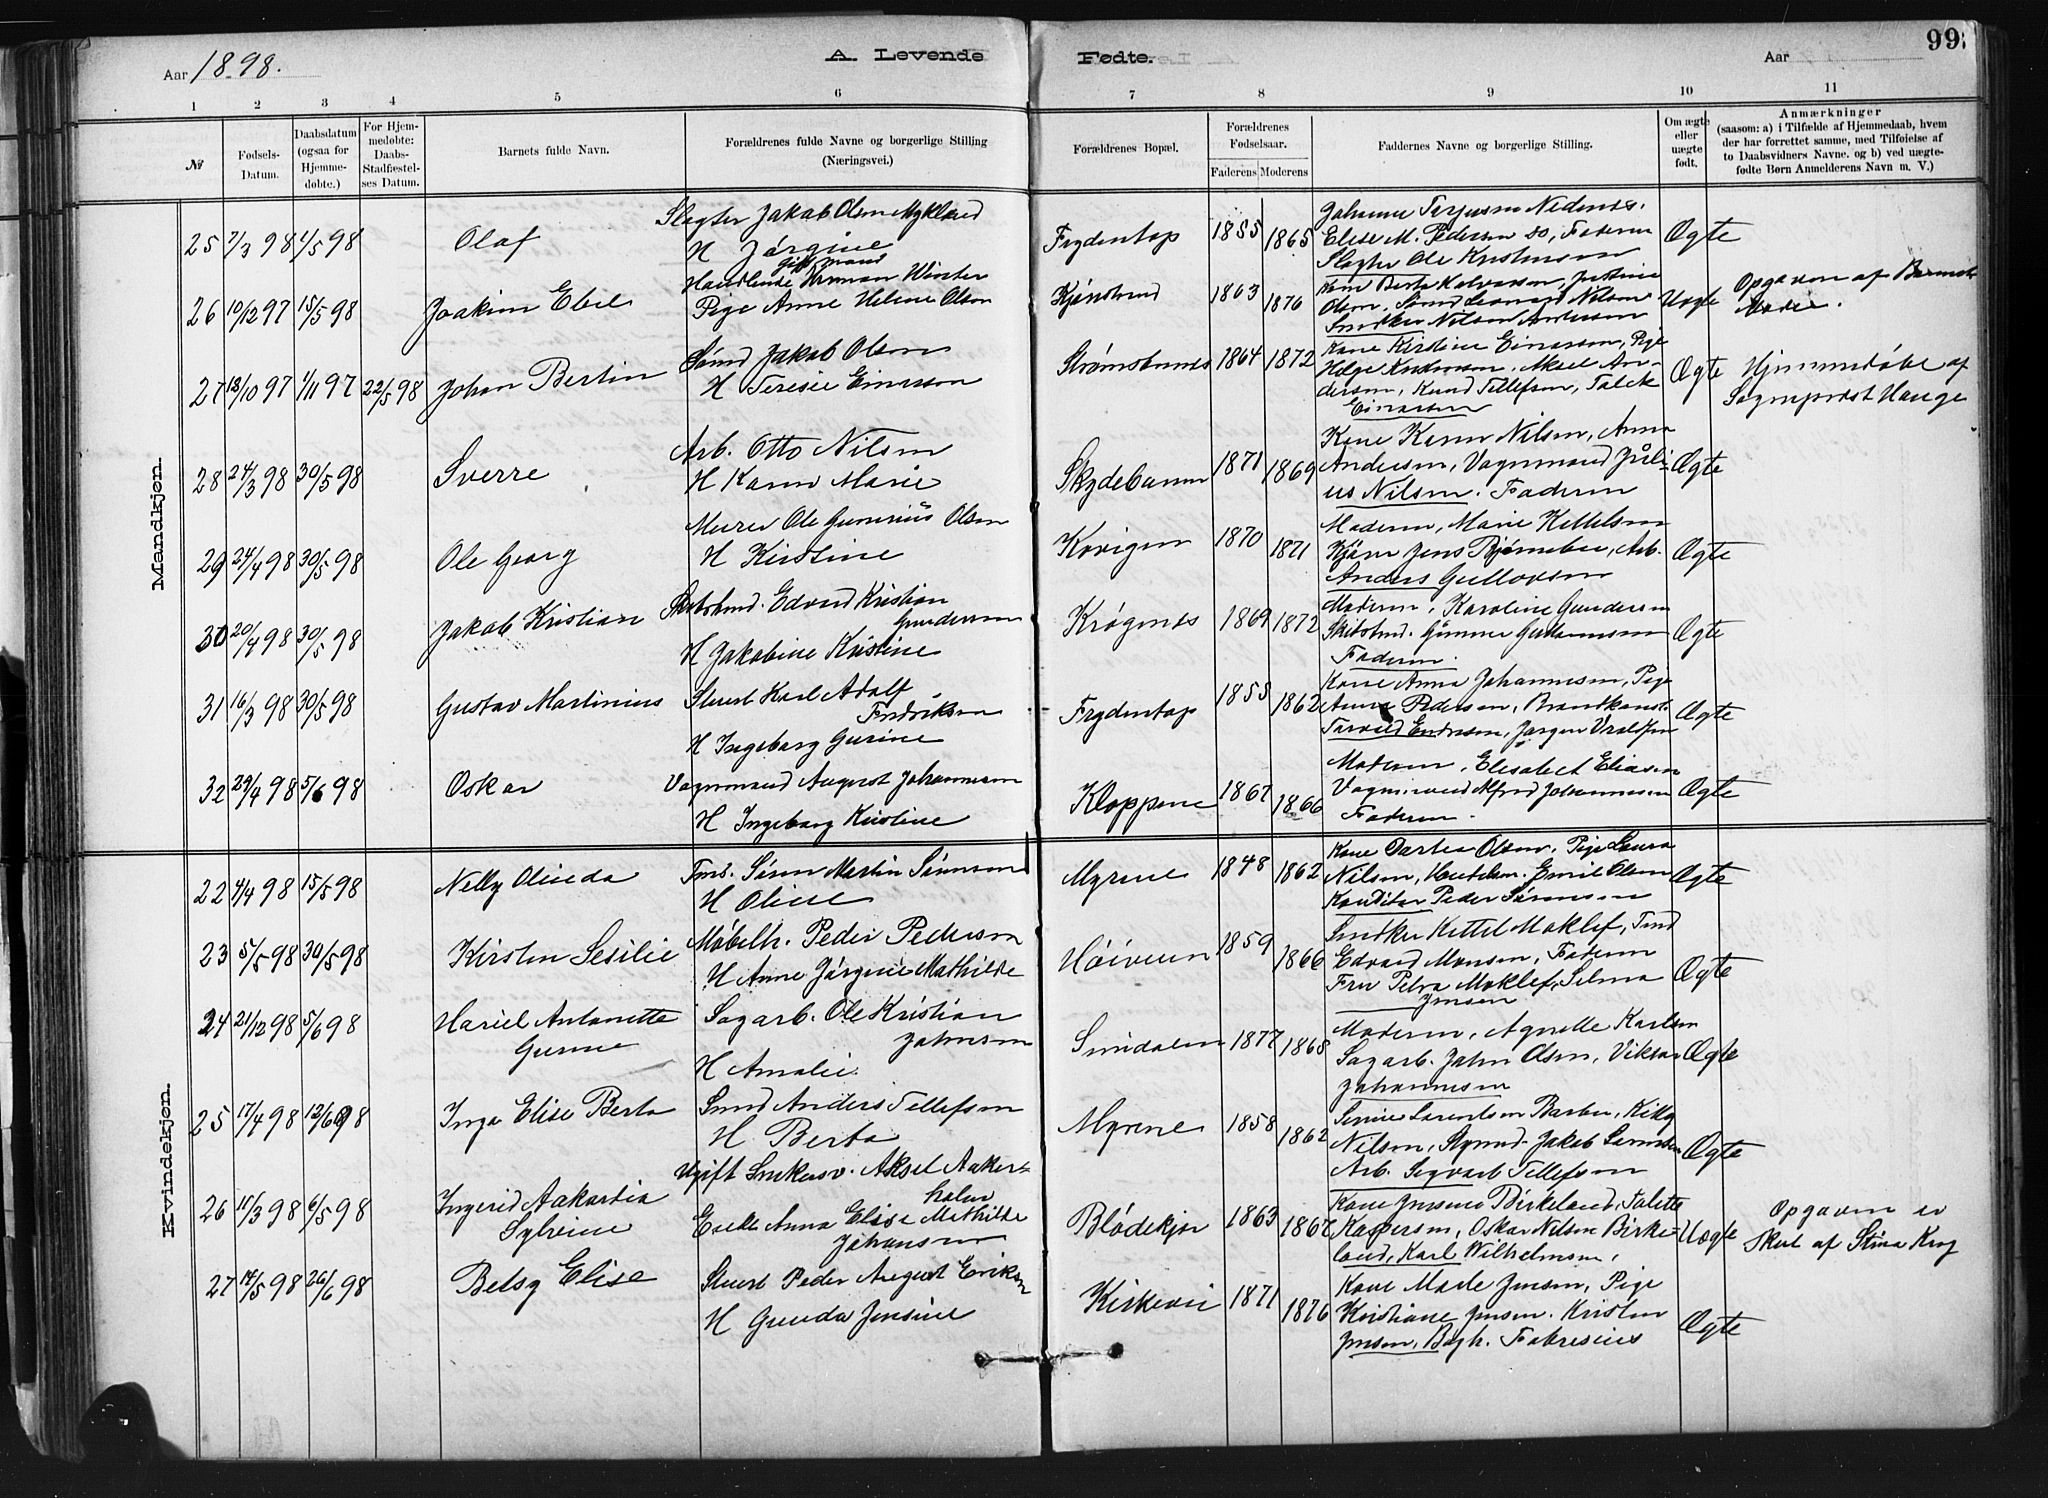 Aar 1898.
A. Levende Fødte.
Aar
99.
1 2 3 4 5 6 7 8 9 10 11
№
Fødsels-Datum.
Daabsdatum (ogsaa for Hjemmedøbte.)
For Hjemmedøbte: Daabs-Stadfæstelses Datum.
Barnets fulde Navn.
Forældrenes fulde Navne og borgerlige Stilling (Næringsvei.)
Forældrenes Bopæl.
Forældrenes Fødselsaar.
Faderens Moderens
Faddernes Navne og borgerlige Stilling.
Om ægte eller uægte født.
Anmærkninger
(saasom: a) i Tilfælde af Hjemmedaab, hvem der har forrettet samme, med Tilføielse af to Daabsvidners Navne. og b) ved uægtefødte Børn Anmelderens Navn m. V.)
Mandkjøn.
25 7/3 98 1/5 98 Olaf
Slagter Jakob Olsen Mykland
H Jørgine
Frydentop 1855 1865
Johanne Terjesen Nedenes.
Elise M. Pedersen do, Faderen
Slagter Ole Kristensen
Ægte
26 10/12 97 15/5 98 Joakim Elie
gift mand
Handlende Herman Winter
Pige Anne Helene Olsen
Kjønstrand 1863 1876
Kone Berta Kalvassen, Justine
Olsen, Sømd Leonard Nilsen
Snedker Nilsen Andersen
Uægte
Opgaven af Barnets Moder.
27 13/10 97 1/11 97 22/5 98 Johan Bertin
Sømd Jakob Olsen
H Teresie Einarsen
Strømsbunes 1864 1872
Kone Kirstine Einarsen, Pige
Helge Andersen, Aksel Andersen, Knud Tellefsen, Talek
Einarsen
Ægte
Hjemmedøbt af
Sogneprest Hauge
28 24/3 98 30/5 98 Sverre
Arb. Otto Nilsen
H Karen Marie
Skydebanen 1871 1869
Kone Karen Nilsen, Anna
Andersen, Vognmand Juli-
us Nilsen. Faderen
Ægte
29 24/4 98 30/5 98 Ole Georg
Murer Ole Gunerius Olsen
H Kirstine
Kovigen 1870 1871
Moderen, Marie Kittelsen
Kjører Jens Bjørnebu, Arb.
Anders Gullovsen
Ægte
30 20/4 98 30/5 98 Jakob Kristian
Skibstmd. Edvard Kristian
Gundersen
H Jakobine Kristine
Krøgenes 1869 1872
Moderen, Karoline Gundersen
Skibstmd. Gunner Gustamsen
Faderen.
Ægte
31 16/3 98 30/5 98 Gustav Martinius
Stuert Karl Adolf
Fredriksen
H Ingeborg Gurine
Frydentop 1855 1862
Kone Anna Johannesen, Pige
Anna Pedersen, Brandkonst.
Tarvald Endresen, Jørgen Vraldsen
Ægte
32 29/4 98 5/6 98 Oskar
Vognmand August Johannesen
H Ingeborg Kristine
Kloppene 1867 1866
Moderen, Elisabet Eliasen
Vognmand Alfred Johannesen
Faderen.
Ægte
Kvindekjøn.
22 4/4 98 15/5 98 Nelly Olieda
Tmd. Søren Martin Sørensen
H Oliese
Myrene 1848 1862
Kone Dortea Olsen, Pige Laura
Nilsen, Handelsm. Emil Olsen
Konditor Peder Sørensen
Ægte
23 5/5 98 30/5 98 Kirsten Sesilie
Møbelh. Peder Pedersen
H Anne Jørgine Mathilde
Høiveien 1859 1866
Snedker Kittel Moklef, Tmd
Edvard Monsen, Faderen
Fru Petra Moklef, Selma
Jensen
Ægte
24 21/12 98 5/6 98 Hariel Antonette
Gurine
Sagarb. Ole Kristian
Johnsen
H Amalie.
Simdalen 1877 1868
Moderen, Agnette Karlsen
Sagarb. John Olsen, Viktor
Johannesen
Ægte
25 17/4 98 12/6 98 Inga Elise Berta
Smed Anders Tellefsen
H Berta
Myrene 1858 1862
Semine Lorentsen Barbu, Kitty
Nilsen, Styrmd. Jakob Sørensen
Arb. Sigvart Tellefsen
Ægte
26 11/3 98 6/5 98 Ingerid Aakortia
Sylvine
Ugift Snekersv. Aksel Aaker-
holm
Enke Anna Elise Mathilde
Johansen
Blødekjær 1863 1867
Kone Jensine Birkeland, Talette
Kaspersen, Oskar Nilsen Birke-
land, Karl Wilhelmsen,
Uægte
Opgaven er
Skrt af Stina Krog
27 14/5 98 26/6 98 Betsy Elise
Stuert Peder August Eriksen
H Gunda Jensine
Kirkevei 1871 1876
Kone Marte Jensen, Pige
Kristiane Jensen. Kristen
Jensen, Bogh. Fabresius
Ægte